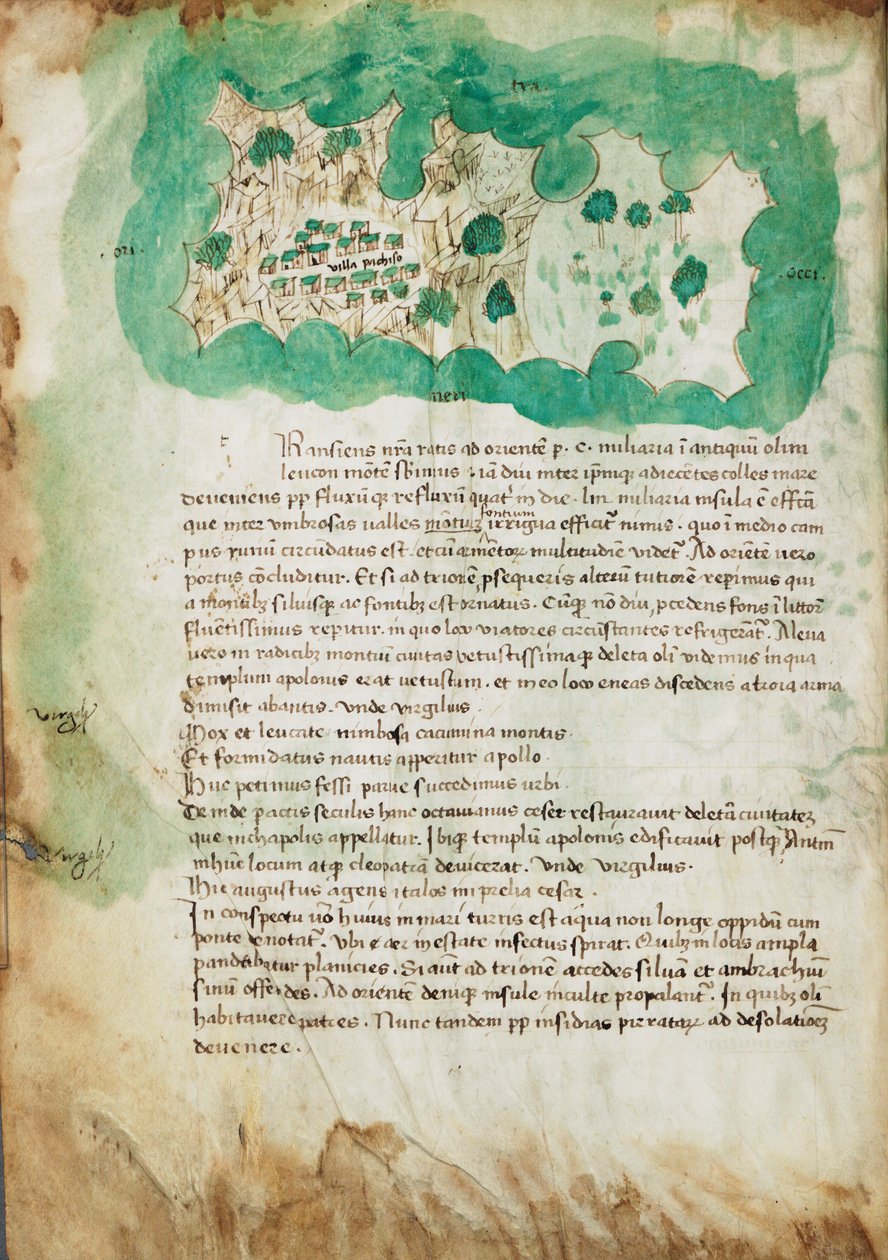 tra.
.ori.
villa pachiso
.occi.
neri
t
Ransiens nr̄a ratis ad orientē p. c. miliaria ī antiquū olim
leucon mōtem
deueniens pp̄ fluxū qꝫ refluxū quat᷑ in die. liii miliaria insula ē effc̄a
fontium
que inter vmbrosas ualles montiuꝫ irrigua efficit᷑ nimis. quo ī medio cam
pus circūdatus est et cū armētoꝝ multitudiēe videt᷑. Ad oriētē uero
portus cōcluditur. Et si ad trionē ꝓsequeris alterū tutiorē reperimus qui
a montibꝫ siluisqꝫ ac fontibꝫ est ornatus. Cūqꝫ nō diu ꝓcedens fons ī littore
fluētissimus repitur. in quo loco viatores circūstantes refrigerāt᷑. A leua
uero in radicibꝫ montiū ciuitas vetustissimaqꝫ deleta olī videmus in qua
templum apolonis erat uetustum. et in eo loco eneas discedens a troia arma
dimisit abantis. vnde virgilius.
virgilꝫ
Mox et leucate nimbosa cacumina montis.
Et formidatus nautis apperitur apollo.
Huc petimus fessi parue succedimus urbi.
Deinde pactis seculis hanc octauianus ceser restaurauit deletā ciuitateꝫ
que nichapolis appellatur. Ibiqꝫ templū apolonis edificauit postqꝫ Antm̄
virgilꝫ
in hūc locum atqꝫ cleopatrā deuicerat. vnde virgilius.
Hic augustus agens italos in prelia cesar.
In conspectu uō huius in mari turris est a qua non longe oppidū cum
ponte denotat᷑. Vbi ⁊ aer in estate infectus spirat. Quibꝫ in locis ampla
pandebatur planicies. Si aūt ad trionē accedes siluā et ambrachiū
sinū offēdes. Ad orientē deniqꝫ insule inculte propalant᷑. In quibꝫ olī
habitauere patres. Nunc tandem pp̄ insidias pirrataꝝ ad desolatiōeꝫ
deuenere.